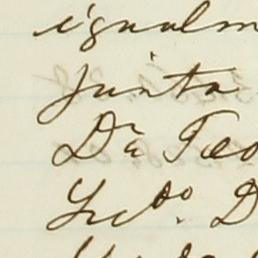 igualm
Junta
Da Teo
Licdo. D